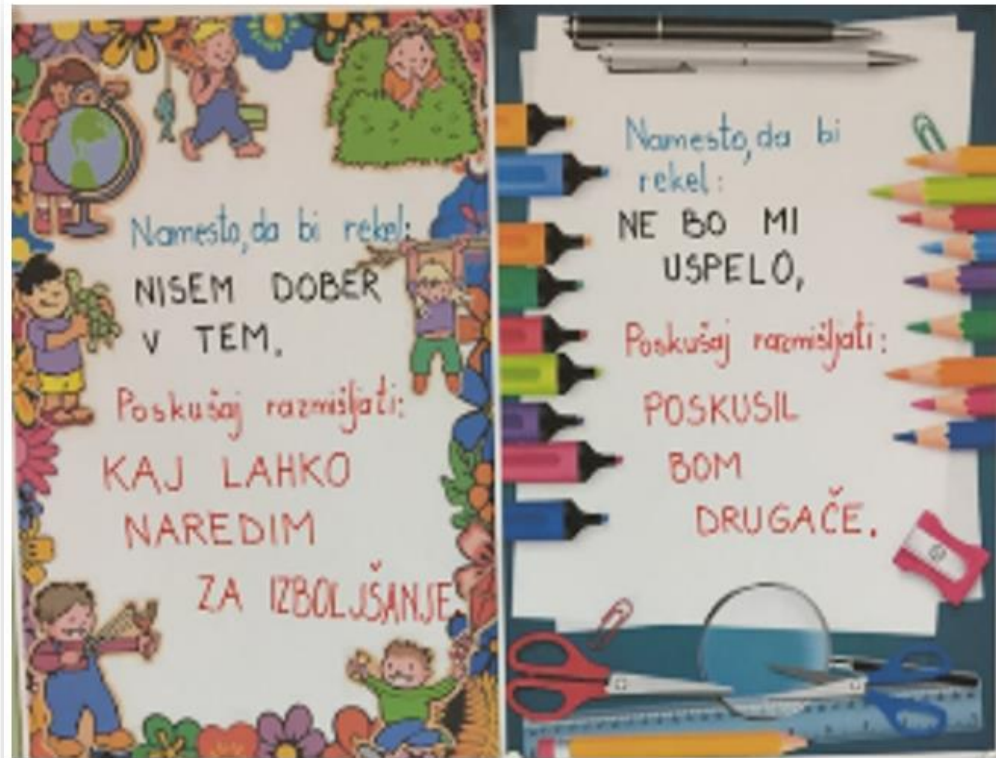 Namesto, da bi rekel:
NISEM DOBER
V TEM.
Poskušaj razmišljati:
KAJ LAHKO
NAREDIM
ZA IZBOLJŠANJE
Namesto, da bi
rekel:
NE BO MI
USPELO,
Poskušaj razmišljati:
POSKUSIL
BOM
DRUGAČE.